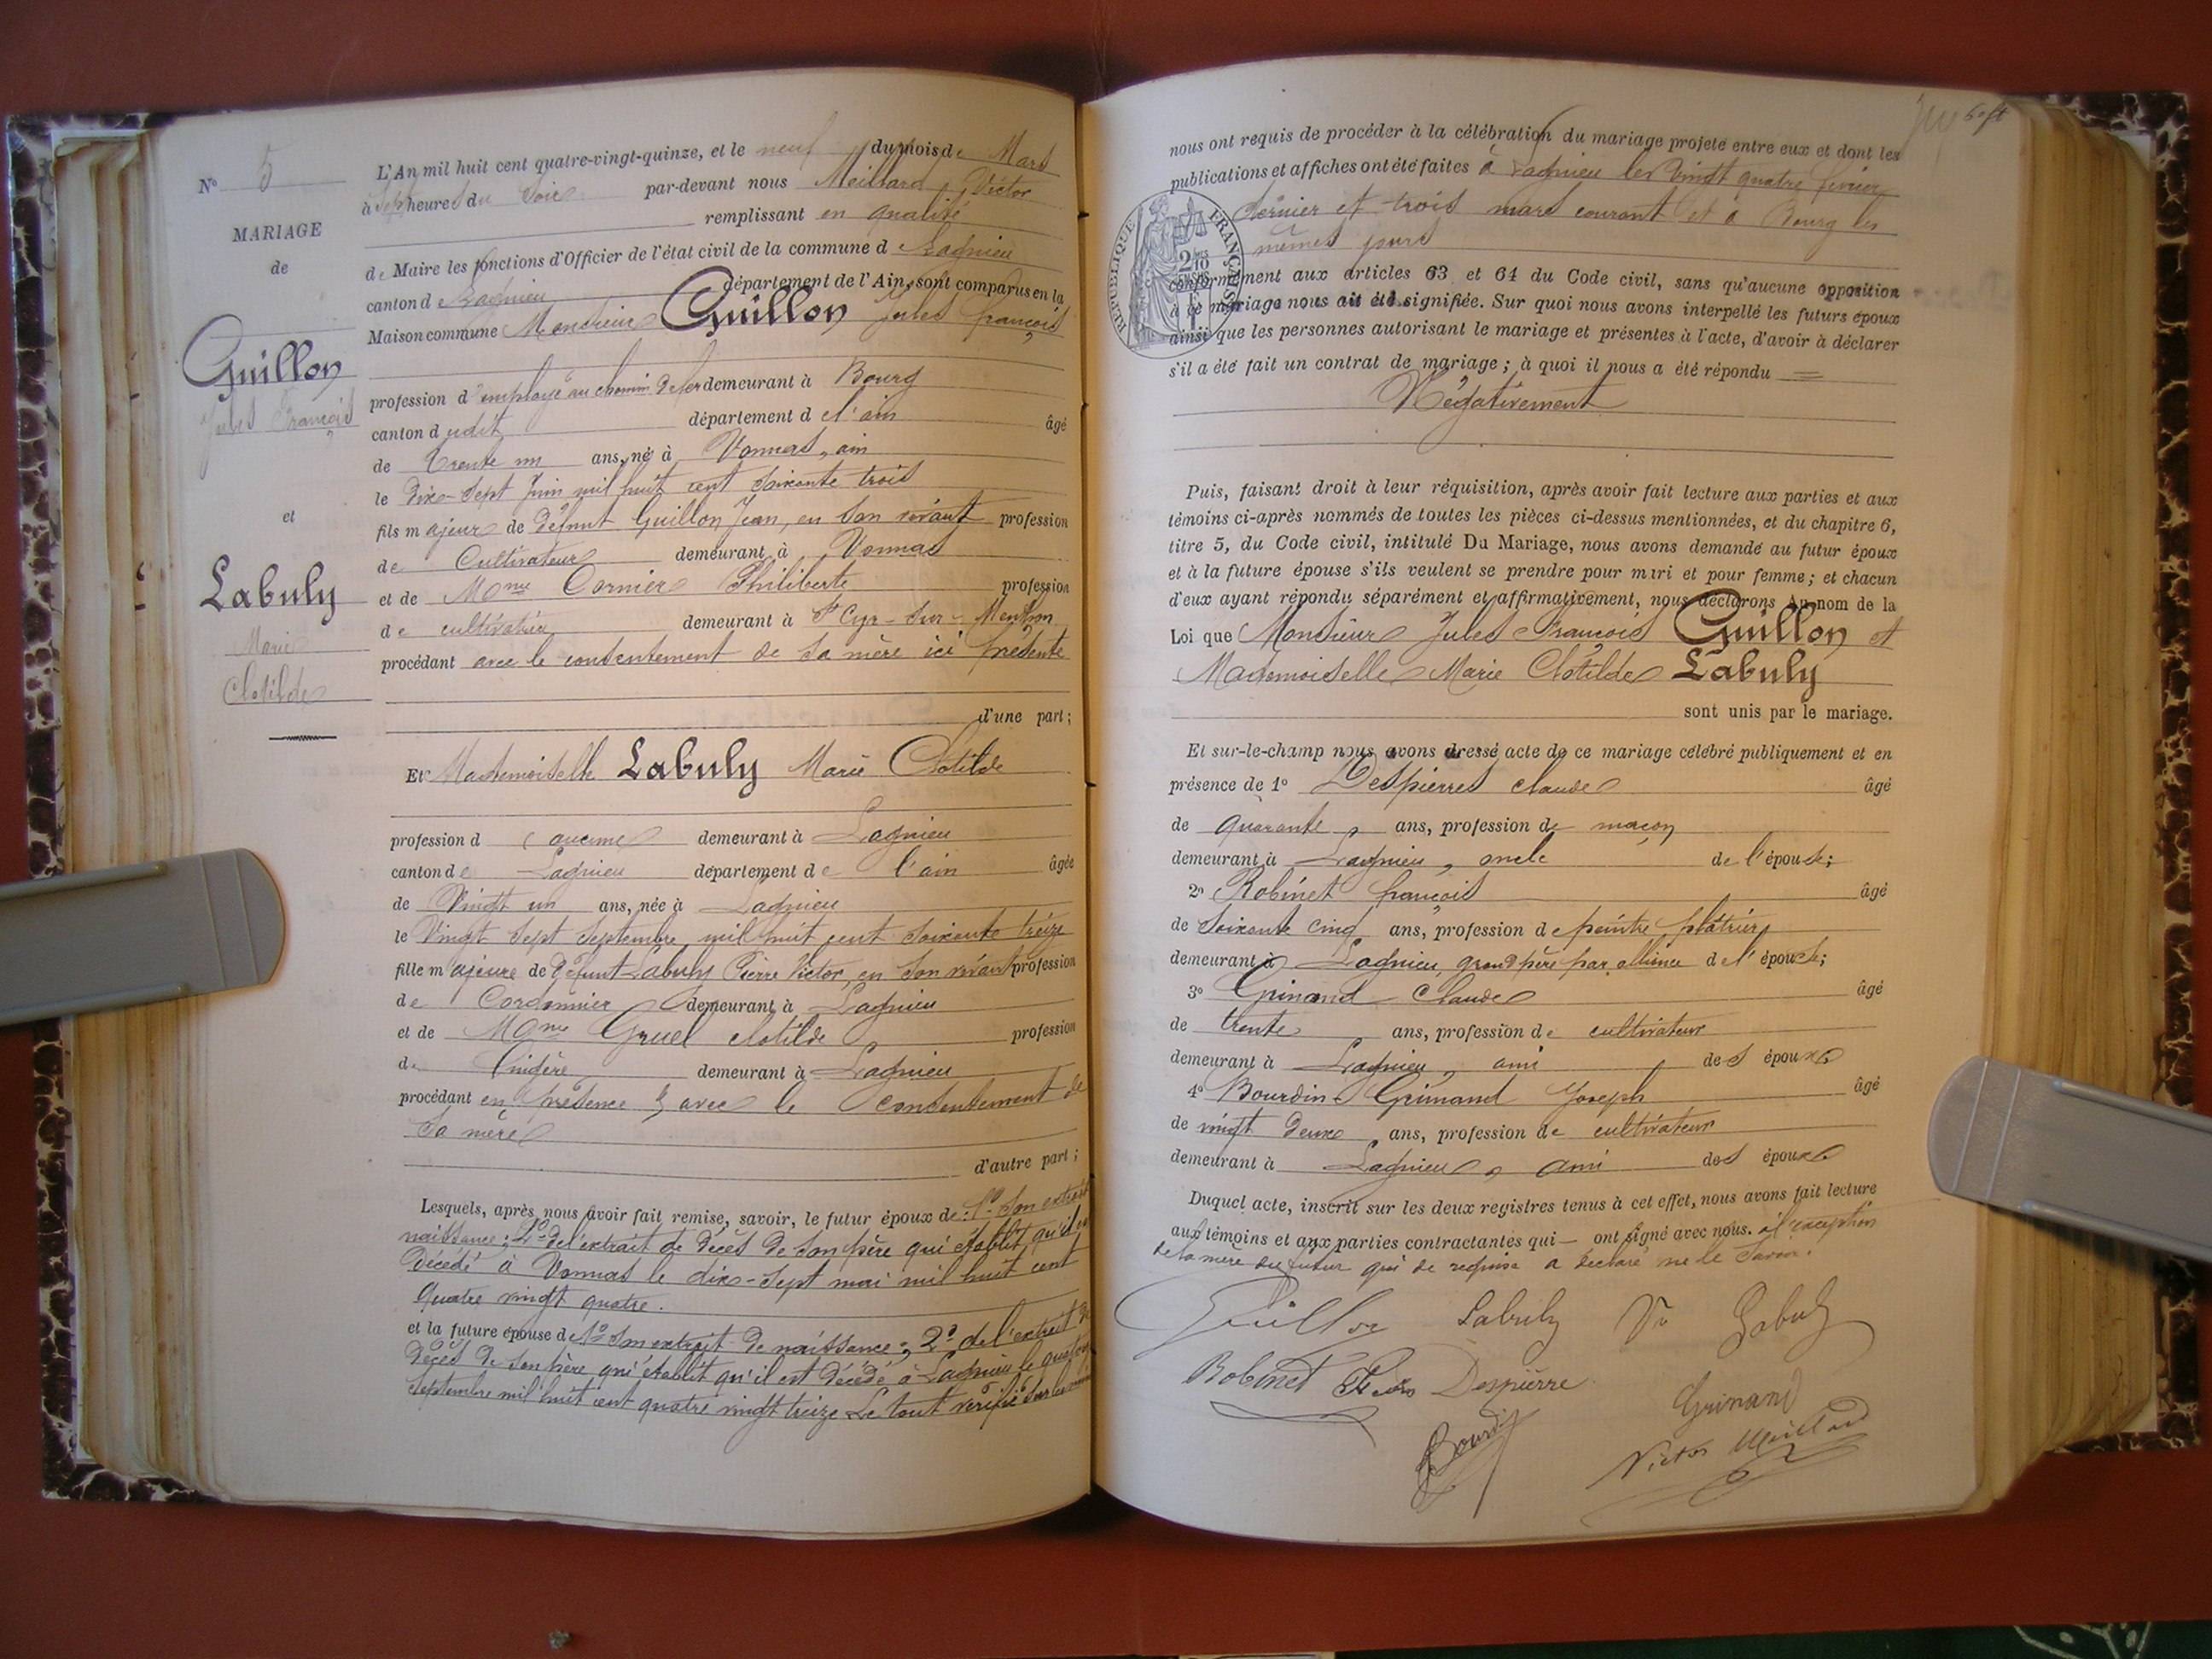 N° 5
MARIAGE
de
Guillon
Jules François
et
Labuly
Marie
Clotilde
L'An mil huit cent quatre-vingt-quinze, et le neuf du mois de Mars
à sept heures du soir par-devant nous Meilland, Victor
remplissant en qualité
de Maire les fonctions d'Officier de l'état civil de la commune de Lagnieu
canton de Lagnieu département de l'Ain, sont comparus en la
Maison commune Monsieur Guillon Jules François
profession d'employé au chemin de fer demeurant à Bourg
canton dudit département de l'ain âgé
de trente un ans, né à Vonnas, ain
le dix-sept Juin mil huit cent soixante trois
fils majeur de défunt Guillon Jean, en son vivant profession
de Cultivateur demeurant à Vonnas
et de Mme Cornier Philiberte profession
de cultivatrice demeurant à St Cyr-sur-Menthon
procédant avec le consentement de sa mère ici présente
d'une part;
Et Mademoiselle Labuly Marie Clotilde
profession d aucune demeurant à Lagnieu
canton de Lagnieu département de l'ain âgée
de Vingt un ans, née à Lagnieu
le Vingt sept septembre mil huit cent soixante treize
fille majeure de défunt Labuly Pierre Victor, en son vivant profession
de Cordonnier demeurant à Lagnieu
et de Mme Gruel clotilde profession
de lingère demeurant à Lagnieu
procédant en présence & avec le consentement de
sa mère
d'autre part;
Lesquels, après nous avoir fait remise, savoir, le futur époux de: 1° Son extrait
naissance; 2° de l'extrait de décès de son père qui établit qu'il
décédé à Vonnas le dix-sept mai mil huit cent
quatre vingt quatre.
et la future épouse de 1° son extrait de naissance; 2° de l'extrait de
décès de son père qui établit qu'il est décédé à Lagnieu le
septembre mil huit cent quatre vingt treize Le tout vérifié sur les
nous ont requis de procéder à la célébration du mariage projeté entre eux et dont les
publications et affiches ont été faites à Lagnieu les vingt quatre février
dernier et trois mars courant et à Bourg les
mêmes jours
RÉPUBLIQUE FRANÇAISE
2/10
conformément aux articles 63 et 64 du Code civil, sans qu'aucune opposition
à ce mariage nous ait été signifiée. Sur quoi nous avons interpellé les futurs époux
ainsi que les personnes autorisant le mariage et présentes à l'acte, d'avoir à déclarer
s'il a été fait un contrat de mariage; à quoi il nous a été répondu
Négativement
Puis, faisant droit à leur réquisition, après avoir fait lecture aux parties et aux
témoins ci-après nommés de toutes les pièces ci-dessus mentionnées, et du chapitre 6,
titre 5, du Code civil, intitulé Du Mariage, nous avons demandé au futur époux
et à la future épouse s'ils veulent se prendre pour mari et pour femme; et chacun
d'eux ayant répondu séparément et affirmativement, nous déclarons Au nom de la
Loi que Monsieur Jules François Guillon et
Mademoiselle Marie Clotilde Labuly
sont unis par le mariage.
Et sur-le-champ nous avons dressé acte de ce mariage célébré publiquement et en
présence de 1° Despierres claude âgé
de quarante ans, profession de maçon
demeurant à Lagnieu, oncle de l'épouse;
2° Robinet françois âgé
de soixante cinq ans, profession de peintre plâtrier
demeurant à Lagnieu, grand père par alliance de l'épouse;
3° Grinand Claude âgé
de trente ans, profession de cultivateur
demeurant à Lagnieu, ami des époux
4° Bourdin-Grinand Joseph âgé
de vingt deux ans, profession de cultivateur
demeurant à Lagnieu, ami des époux
Duquel acte, inscrit sur les deux registres tenus à cet effet, nous avons fait lecture
aux témoins et aux parties contractantes qui — ont signé avec nous. à l'exception
de la mère du futur qui de requise a déclaré ne le savoir.
Guillon Labuly Ve Labuly
Robinet Despierre
Grinand
Bourdin
Victor Meilland